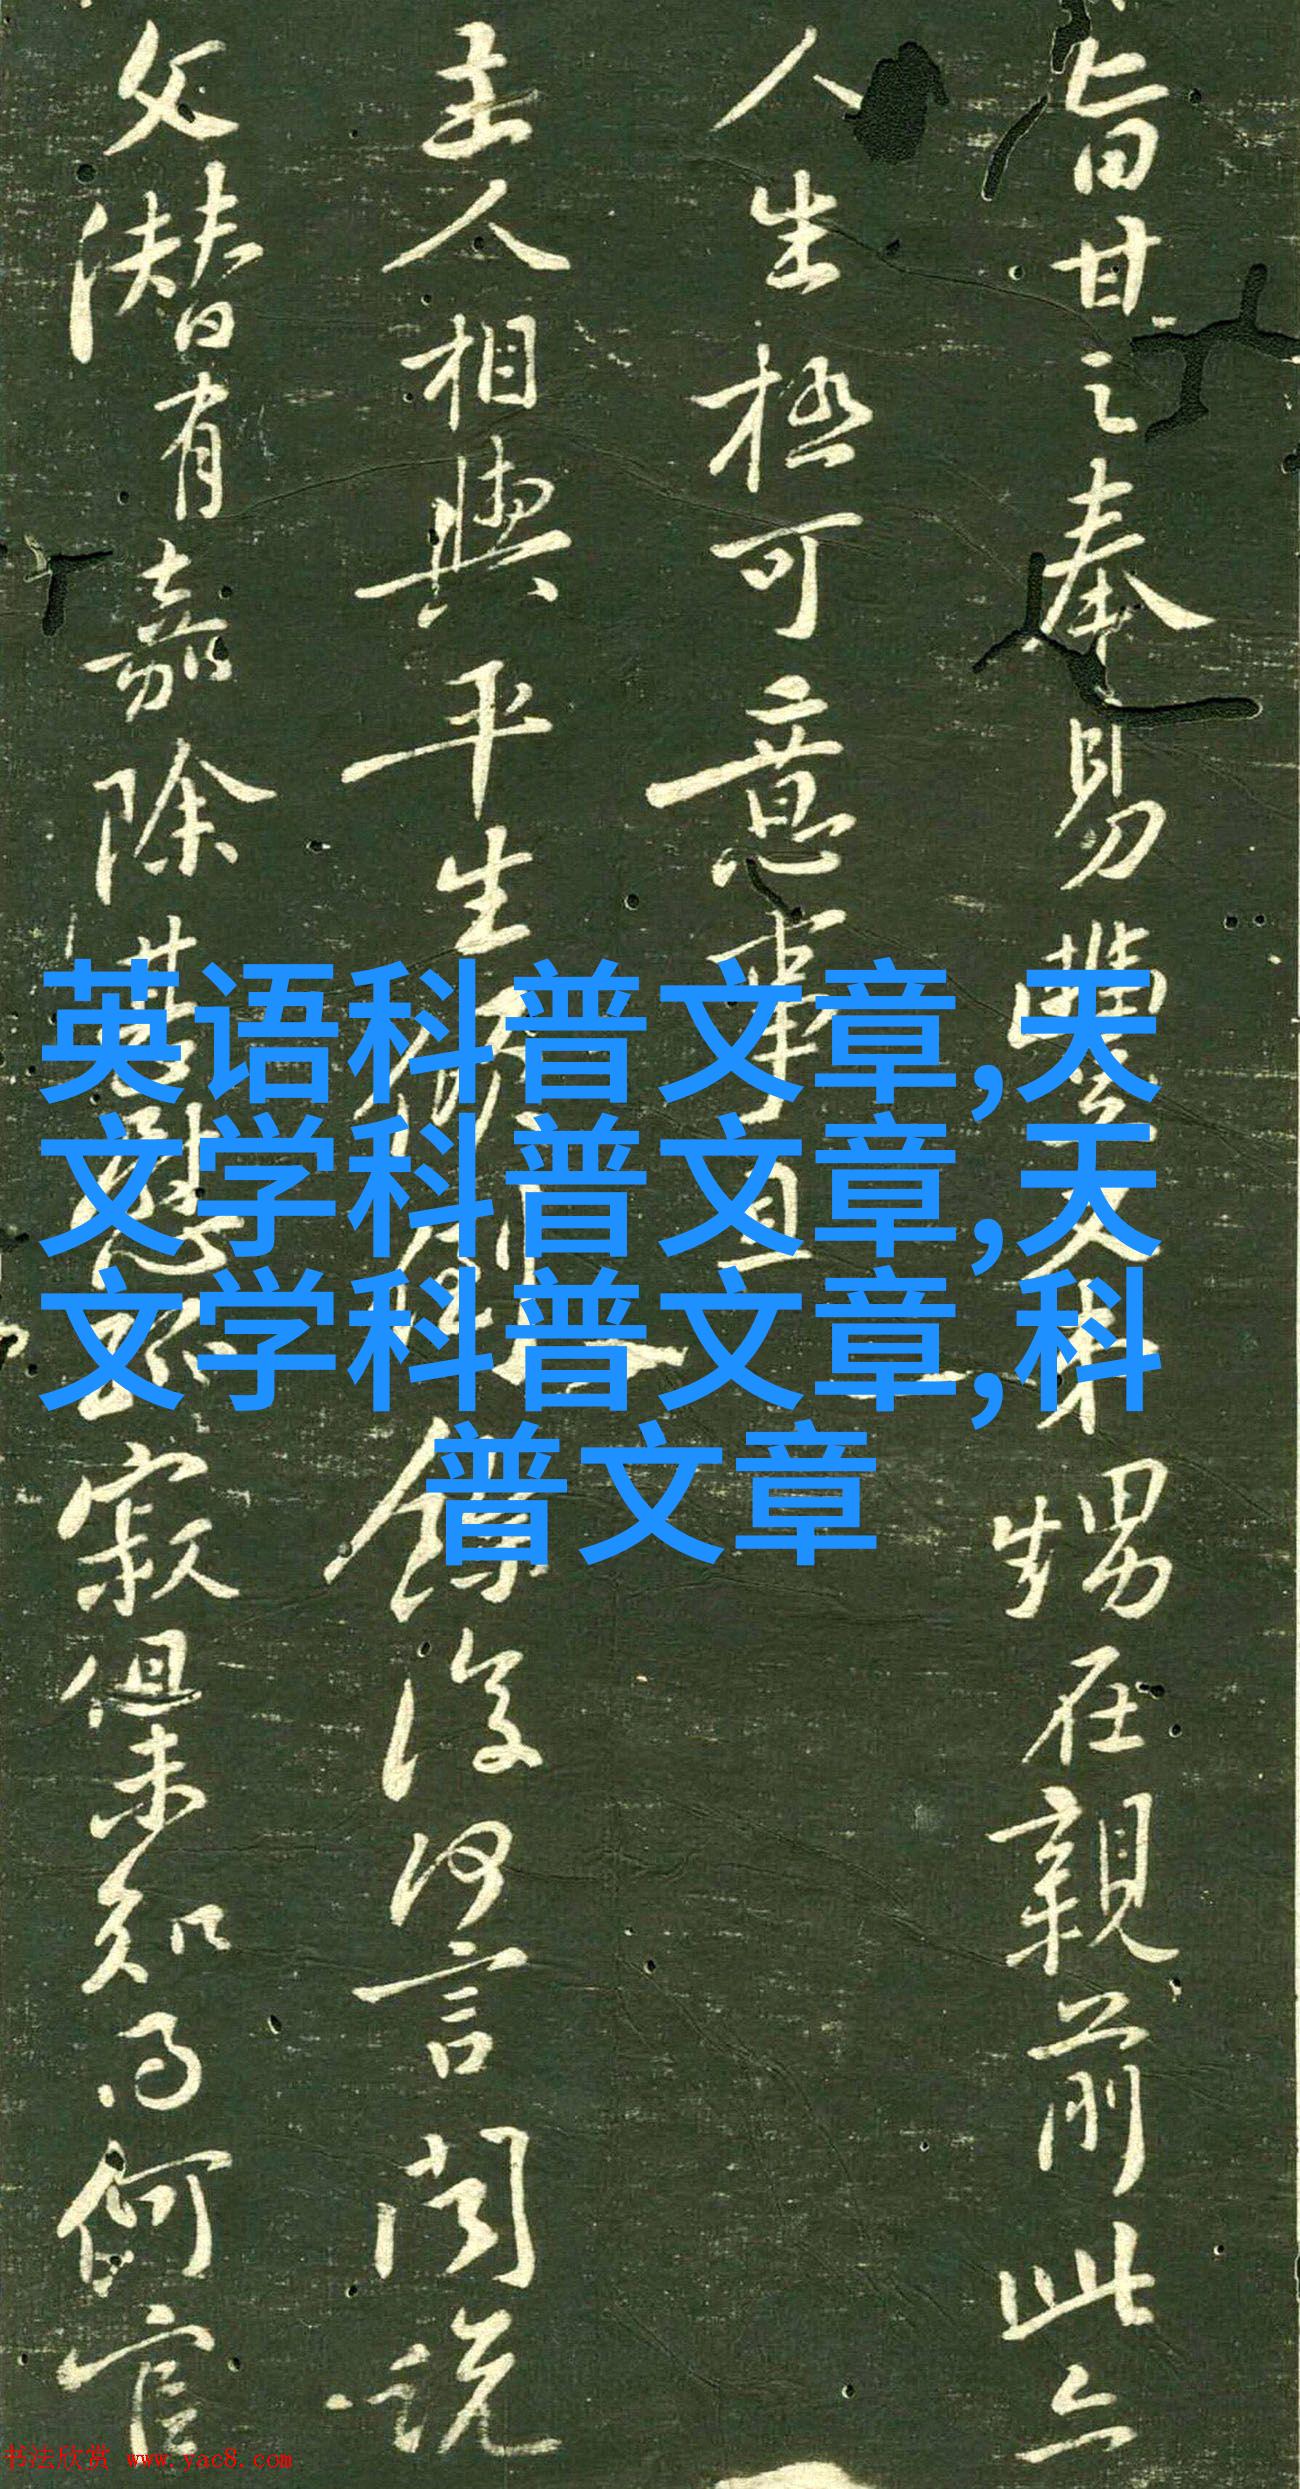 旨甘之奉易豐　　甥在親前此亦
人生極可意事
主人相與平生　　餘復何言聞說
父潛有嘉除　　寂但未知為何官
英语科普文章,天
文学科普文章,天
文学科普文章,科
普文章
书法欣赏 www.yac8.com